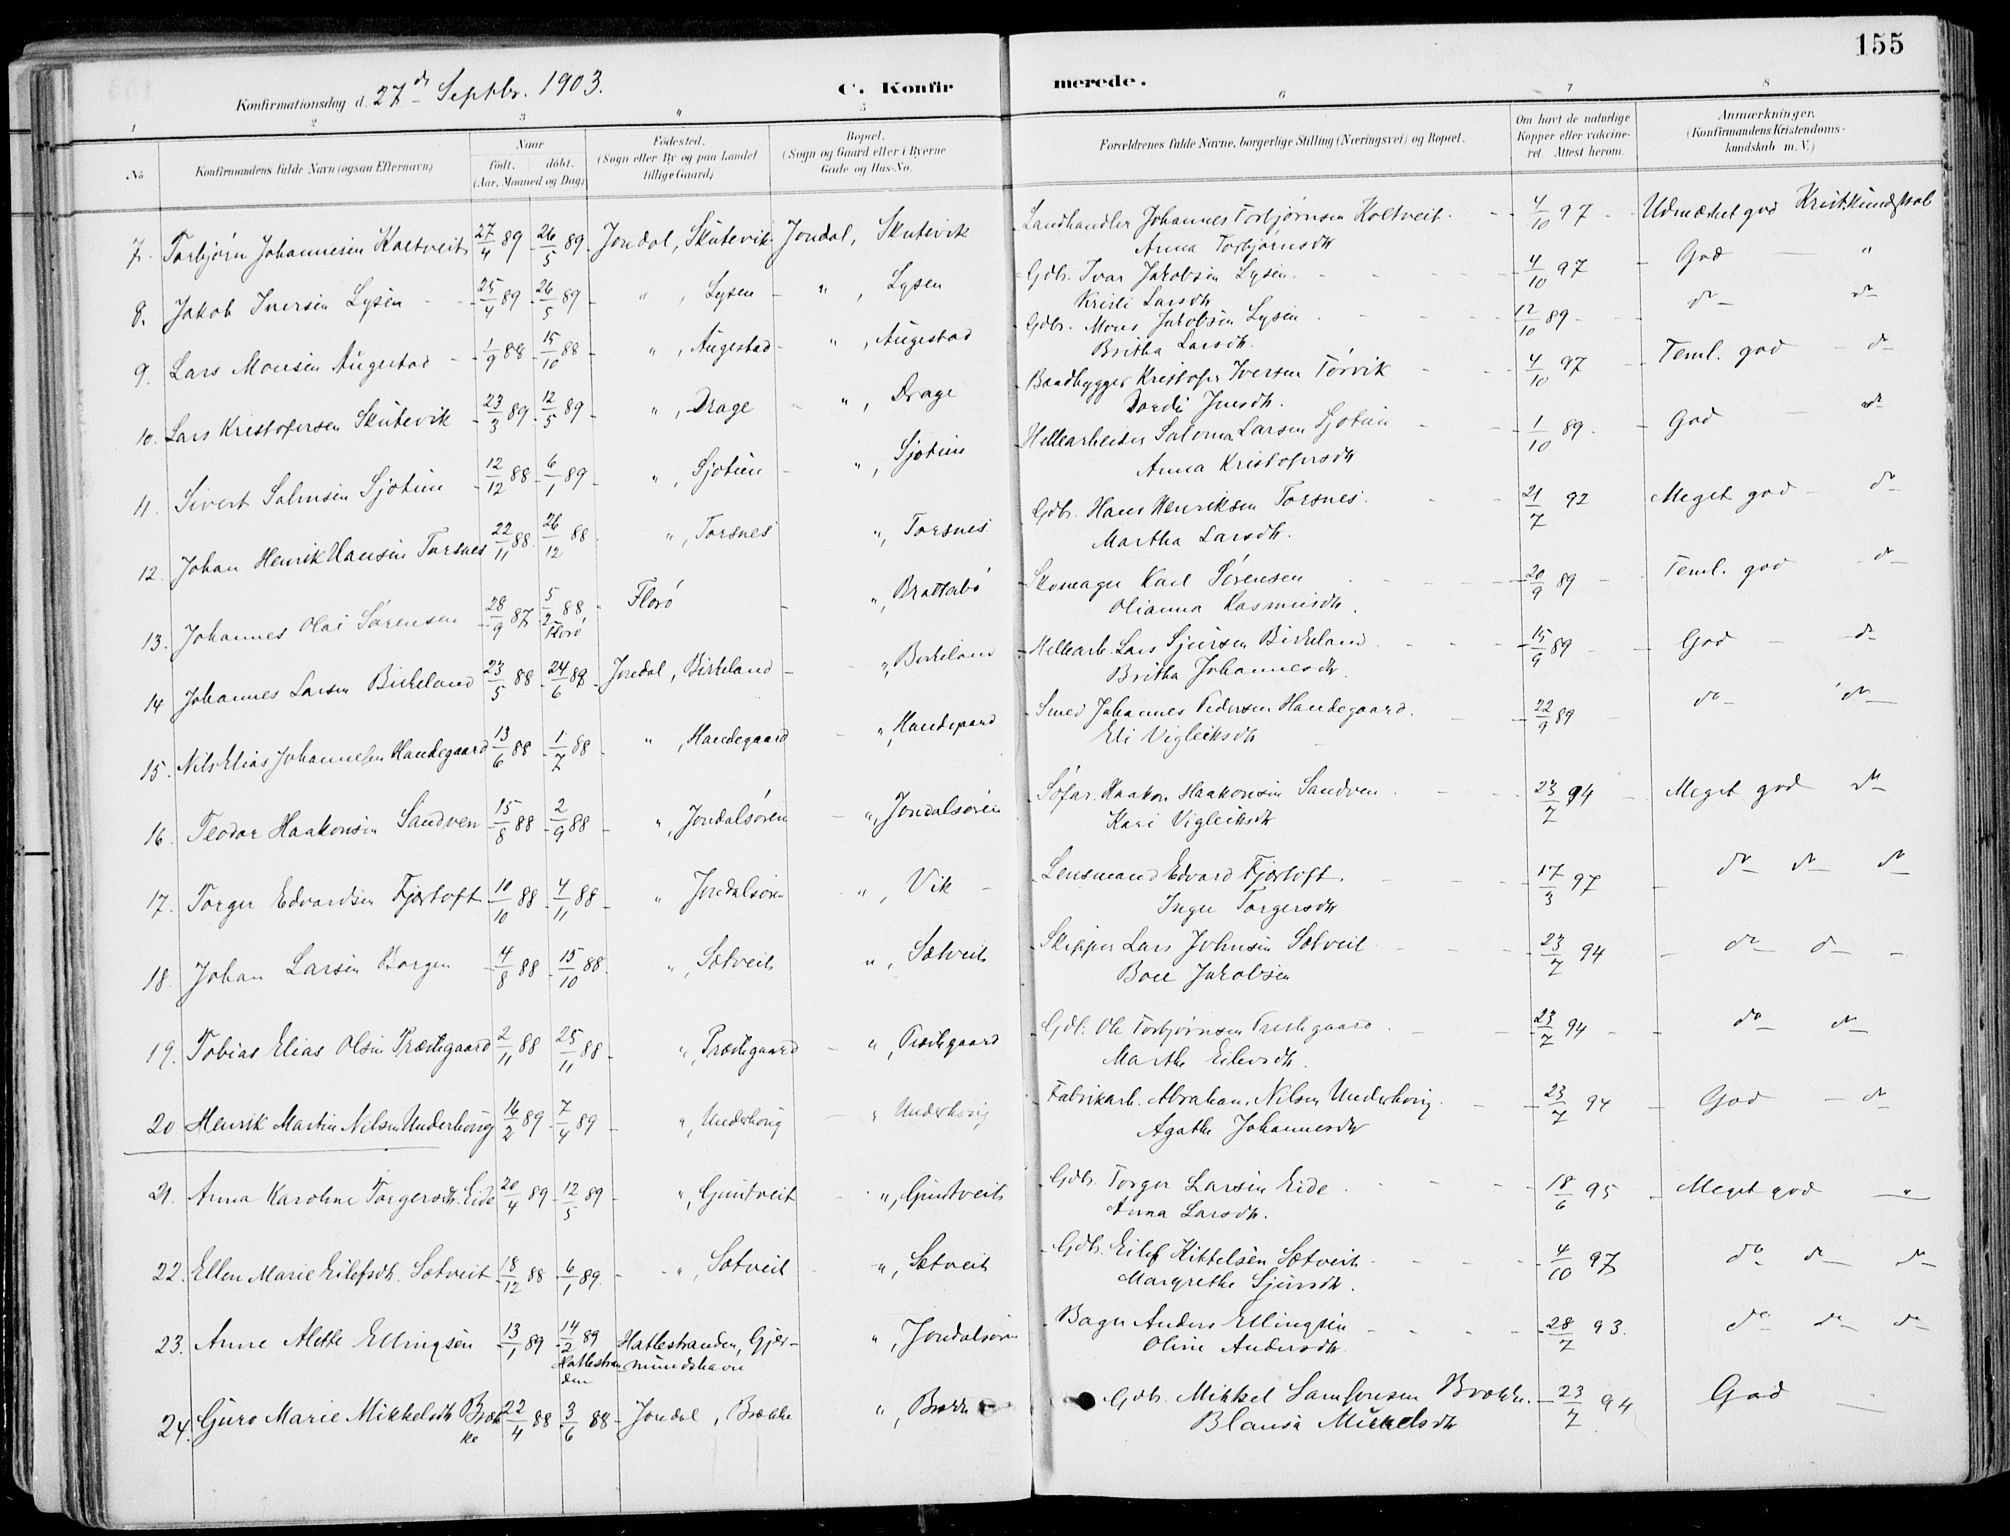 155
Konfirmationsdag d. 27de Septbr. 1903.
C. Konfir merede.
1 2 3 4 5 6 7 8
No
Konfirmandens fulde Navn (ogsaa Efternavn)
Naar
født. døbt.
(Aar, Maaned og Dag)
Fødested.
(Sogn eller By og paa Landet
tillige Gaard)
Bopæl.
(Sogn og Gaard eller i Byerne
Gade og Hus-No.
Forældrenes fulde Navne, borgerlige Stilling (Næringsvei) og Bopæl.
Om havt de naturlige
Kopper eller vakcine-
ret Attest herom.
Anmærkninger.
(Konfirmandens Kristendoms-
kundskab m. V.)
7. Torbjørn Johannesen Koltveit 27/4 89 26/5 89 Jondal, Skutevik Jondal, Skutevik Landhandler Johannes Torbjørnsen Koltveit. 4/10 97 Udmærket god Krist.kundskab
Anna Torbjørnsdtr
8. Jakob Iversen Lysen 25/4 89 26/5 89 " , Lysen " , Lysen Gdbr. Ivar Jakobsen Lysen. 4/10 97 God "
Kristi Larsdtr
9. Lars Monsen Augestad 1/9 88 15/10 88 " , Augestad " , Augestad Gdbr. Mons Jakobsen Lysen 12/10 89 do do
Britha Larsdtr.
10. Lars Kristofersen Skutevik 23/3 89 12/5 89 " , Drage " , Drage Baadbygger Kristofer Iversen Tørvik 4/10 97 Teml. god do
Jonsdtr.
11. Sivert Salmsen Sjotun 12/12 88 6/1 89 " , Sjotun " , Sjotun Hellearbeider Salomon Larsen Sjotun 1/10 89 God do
Anna Kristofersdtr
12. Johan Henrik Hansen Torsnes 22/11 88 26/12 88 " , Torsnes " , Torsnes Gdbr. Hans Henriksen Torsnes. 21/7 92 Meget god do
Martha Larsdtr.
13. Johannes Olai Sørensen 28/9 87 5/2 88 Florø Florø " , Brattabø Skomager Karl Sørensen 20/9 89 Teml. god do
Olianna Rasmusdtr.
14 Johannes Larsen Birkeland 23/5 88 24/6 88 Jondal, Birkeland " , Birkeland Hellearb. Lars Sjursen Birkeland 15/9 89 God do
Britha Johannesdtr.
15. Nils Elias Johannesen Handegaard 13/6 88 1/7 88 " , Handegaard " , Handegaard Smed Johannes Pedersen Handegaard. 22/9 89 do do
Eli Vigleiksdtr
16. Teodor Haakonsen Sandven 15/8 88 2/9 88 " , Jondalsøren " , Jondalsøren Søfar. Haakon Haakonsen Sandven 23/7 94 Meget god do
Kari Vigleiksdtr
17. Torger Edvardsen Fjørtoft 10/10 88 4/11 88 " Jondalsøren " , Vik Lensmand Edvard Fjørtoft. 17/3 97 do do do
Inger Torgersdtr
18. Johan Larsen Borgen 4/8 88 15/10 88 " , Sætveit " , Sætveit Skipper Lars Johnsen Sætveit 23/7 94 do do
Boel Jakobsen
19. Tobias Elias Olsen Præstegaard 2/11 88 25/11 88 " , Præstegaard " , Præstegaard Gdb. Ole Torbjørnsen Præstegaard. 23/7 94 do do
Marthe Eilevsdtr.
20 Henrik Martin Nilsen Underhaug 16/2 89 7/4 89 " , Underhaug " Underhaug Fabrikarb. Abraham Nilsen Underhaug. 23/7 94 God do
Agathe Johannesdtr
21. Anna Karoline Torgersdtr. Eide 20/4 89 12/5 89 " , Guntveit " , Guntveit Gdb. Torger Larsen Eide 18/6 95 Meget god "
Anna Larsdtr.
22. Ellen Marie Eilefsdtr. Sætveit 18/12 88 6/1 89. " , Sætveit " , Sætveit Gdb. Eilef Kittelsen Sætveit 4/10 97 do do do
Margrethe Sjursdtr.
23. Anne Alette Ellingsen 13/1 89 14/2 89 Hatlestranden Hatlestranden, Gjermundshavn " , Jondalsøren Bager Anders Ellingsen 28/7 93. do do do
Oline Andersdtr
24. Guro Marie Mikkelsdtr Brække 22/4 88 3/6 88 Jondal , Brække " , Brække Gdbr. Mikkel Samsonsen Brække. 23/7 94 God
Blansa Mikkelsdtr